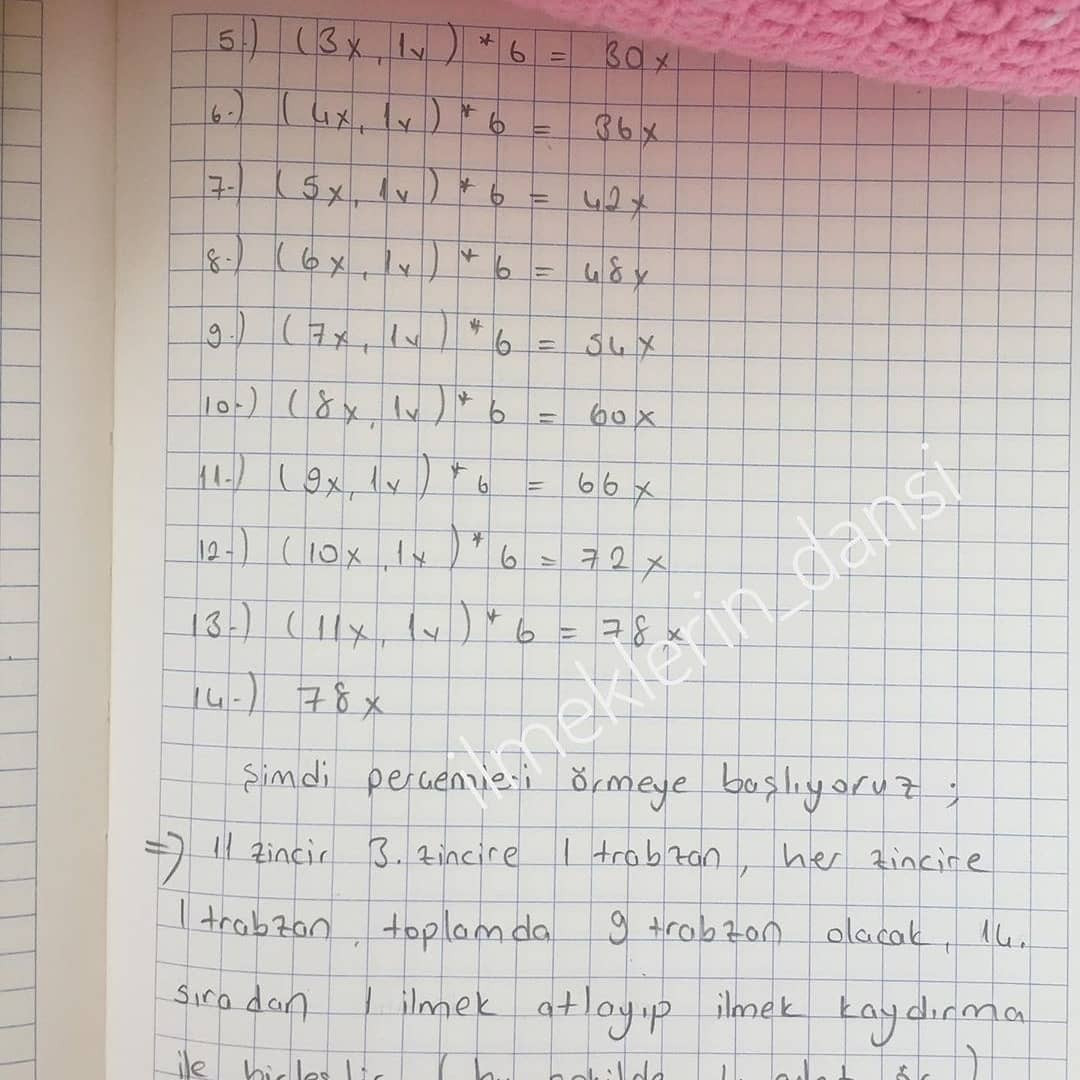 5.) (3x, 1v) * 6 = 30x
6-) (4x, 1v) * 6 = 36x
7-) (5x, 1v) * 6 = 42x
8-) (6x, 1v) * 6 = 48x
9.) (7x, 1v) * 6 = 54x
10-) (8x, 1v) * 6 = 60x
11-) (9x, 1v) * 6 = 66x
12-) (10x, 1v) * 6 = 72x
13-) (11x, 1v) * 6 = 78x
14-) 78x
Şimdi perçemleri örmeye başlıyoruz ;
⇒) 11 zincir 3. zincire 1 trabzan, her zincire
1 trabzan, toplamda 9 trabzon olacak, 14.
sıradan 1 ilmek atlayıp ilmek kaydırma
ile
ilmeklerin_dansi